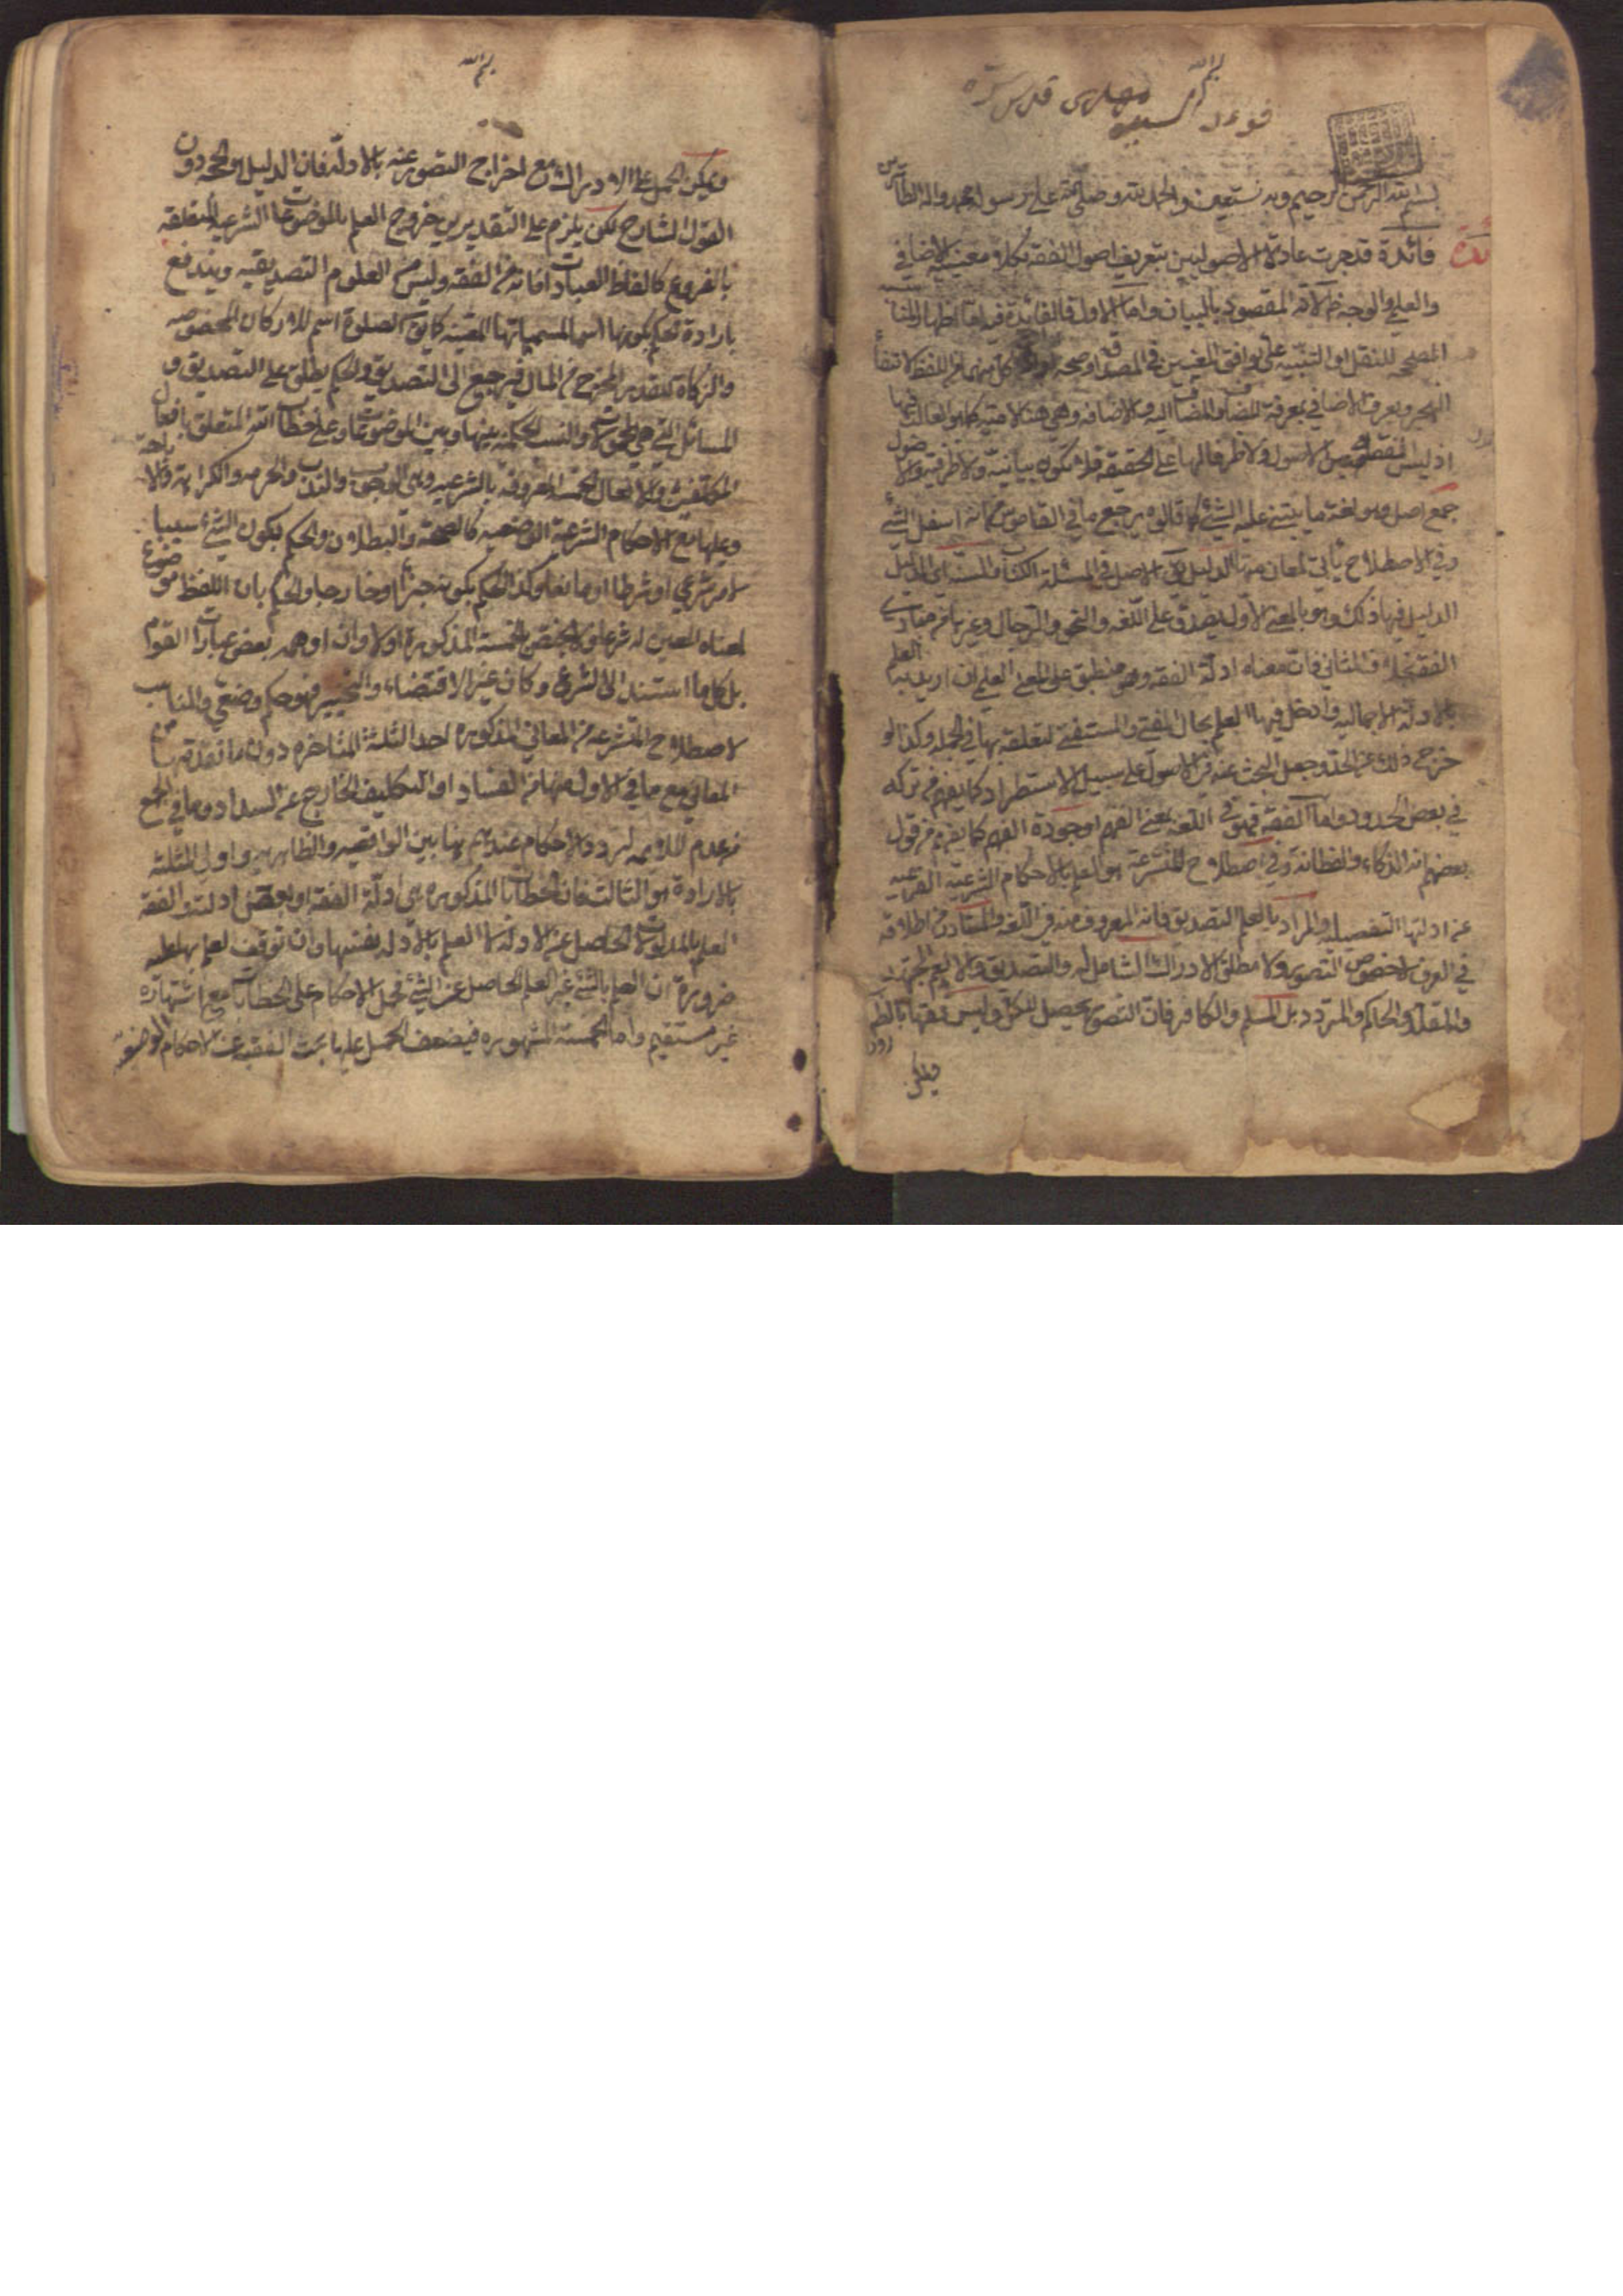 بسم الله
فوائد السيد مهدي قدس سره
بسم الله الرحمن الرحيم وبه نستعين والحمد لله وصلى الله على رسوله محمد واله الطاهرين
فائدة قد جرت عادة الاصوليين بتعريف اصول الفقه بكلا معنييه الاضافي
والعلمي والوجه في الاول المقصود بالبيان واما الاول فالفائدة فيه اما اظهار المناسبة
المصححة للنقل او التنبيه على توافق المعنيين في المصداق وصحة كل منهما من اللفظ
ويعرف الاضافي بمعرفة المضاف والمضاف اليه والاضافة وهي هنا لامية كما هو الغالب فيها
اذ ليس الفقه جنس الاصول ولا ظرفا لها على الحقيقة فلا تكون بيانية ولا ظرفية والاصول
جمع اصل وهو لغة ما يبتنى عليه الشئ كما قالوه ويرجع ما في القاموس من انه اسفل الشئ
وفي الاصطلاح ياتي لمعان منها الدليل يق الاصل في المسئلة الكتاب والسنة اي الدليل
الدليل فيها ذلك وهو بالمعنى الاول يصدق على اللغه والنحو والرجال وغيرها من مبادى
الفقه بخلاف الثاني فان معناه ادلة الفقه وهو منطبق على المعنى العلمي ان اريد به العلم
بالادلة الاجماليه وادخل فيها العلم بحال المفتي والمستفتي لتعلقه بها في الجملة وكذا لو
خرج ذلك عن الحد وجعل البحث عنه في الاصول على سبيل الاستطراد كما يفهم من تركه
في بعض الحدود واما الفقه فهو في اللغه بمعنى الفهم او جودة الفهم كما يفهم من قول
بعضهم انه الذكاء والفطانة وفي اصطلاح المتشرعة هو العلم بالاحكام الشرعية الفرعية
عن ادلتها التفصيلية والمراد بالعلم التصديق فانه المعروف منه في اللغه والمتبادر من اطلاقه
في العرف لا خصوص التصور ولا مطلق الادراك الشامل له والتصديق والا لعم المجتهد
والمقلد والحاكم والمتردد بل المسلم والكافر فان التصور يحصل للكل وليس فقها بالضرورة
ويمكن
بسم الله
ويمكن الحمل على الادراك مع اخراج التصور عنه بالادلة فان الدليل هو الحجة دون
القول الشارح لكن يلزم على التقديرين خروج العلم بالموضوعات الشرعية المتعلقة
بالفروع كالفاظ العبادات فانه من الفقه وليس من العلوم التصديقيه ويندفع
بارادة الحكم بكونها اسما لمسمياتها المعينه كما يق الصلوة اسم للاركان المخصوصه
والزكاة للقدر المخرج من المال فيرجع الى التصديق والحكم يطلق على التصديق و
المسائل التي هي المحمولات والنسب الحكمية بينها وبين الموضوعات وعلى خطاب الله المتعلق بافعال
المكلفين وعلى الاحكام الخمسة المعروفه بالشرعيه وهي الوجوب والندب والحرمه والكراهة والاباحة
وعليها مع الاحكام الشرعية الوضعيه كالصحة والبطلان والحكم بكون الشئ سببا
لامر شرعي او شرطا او مانعا وكذا الحكم بكونه جزءا او خارجا والحكم بان اللفظ موضوع
لمعناه المعين له شرعا ولا يختص بالخمسة المذكورة اولا وان اوهمه بعض عبارات القوم
بل كلما استند الى الشرع وكان غير الاقتضاء والتخيير فهو حكم وضعي والمناسب
لاصطلاح المتشرعه من المعاني المذكوره احد الثلثة المتاخره دون ما تقدم من
المعاني مع ما في الاول منها من الفساد او التكليف الخارج عن السداد وما في الجمع
من عدم الملائمه لتردد الاحكام عندهم بينها بين الواقعيه والظاهريه واولى الثلثة
بالارادة هو الثالث فان الخطابات المذكوره هى ادلة الفقه او بعض ادلته والفقه
العلم بالمدلولات الحاصل عن الادلة لا العلم بالادلة نفسها وان توقف العلم بها عليه
ضرورة ان العلم بالشئ غير العلم الحاصل عن الشئ فحمل الاحكام على الخطابات مع اشتهاره
غير مستقيم واما الخمسة المشهوره فيضعف الحمل عليها بحث الفقيه عن الاحكام الوضعية